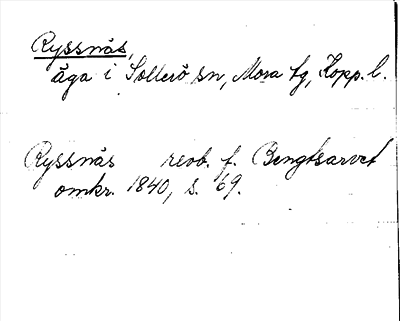 Ryssnäs,
äga i Sollerö sn, Mora tg, Kopp. l.
Ryssnäs revb. f. Bengtsarvet
omkr. 1840, s. 69.